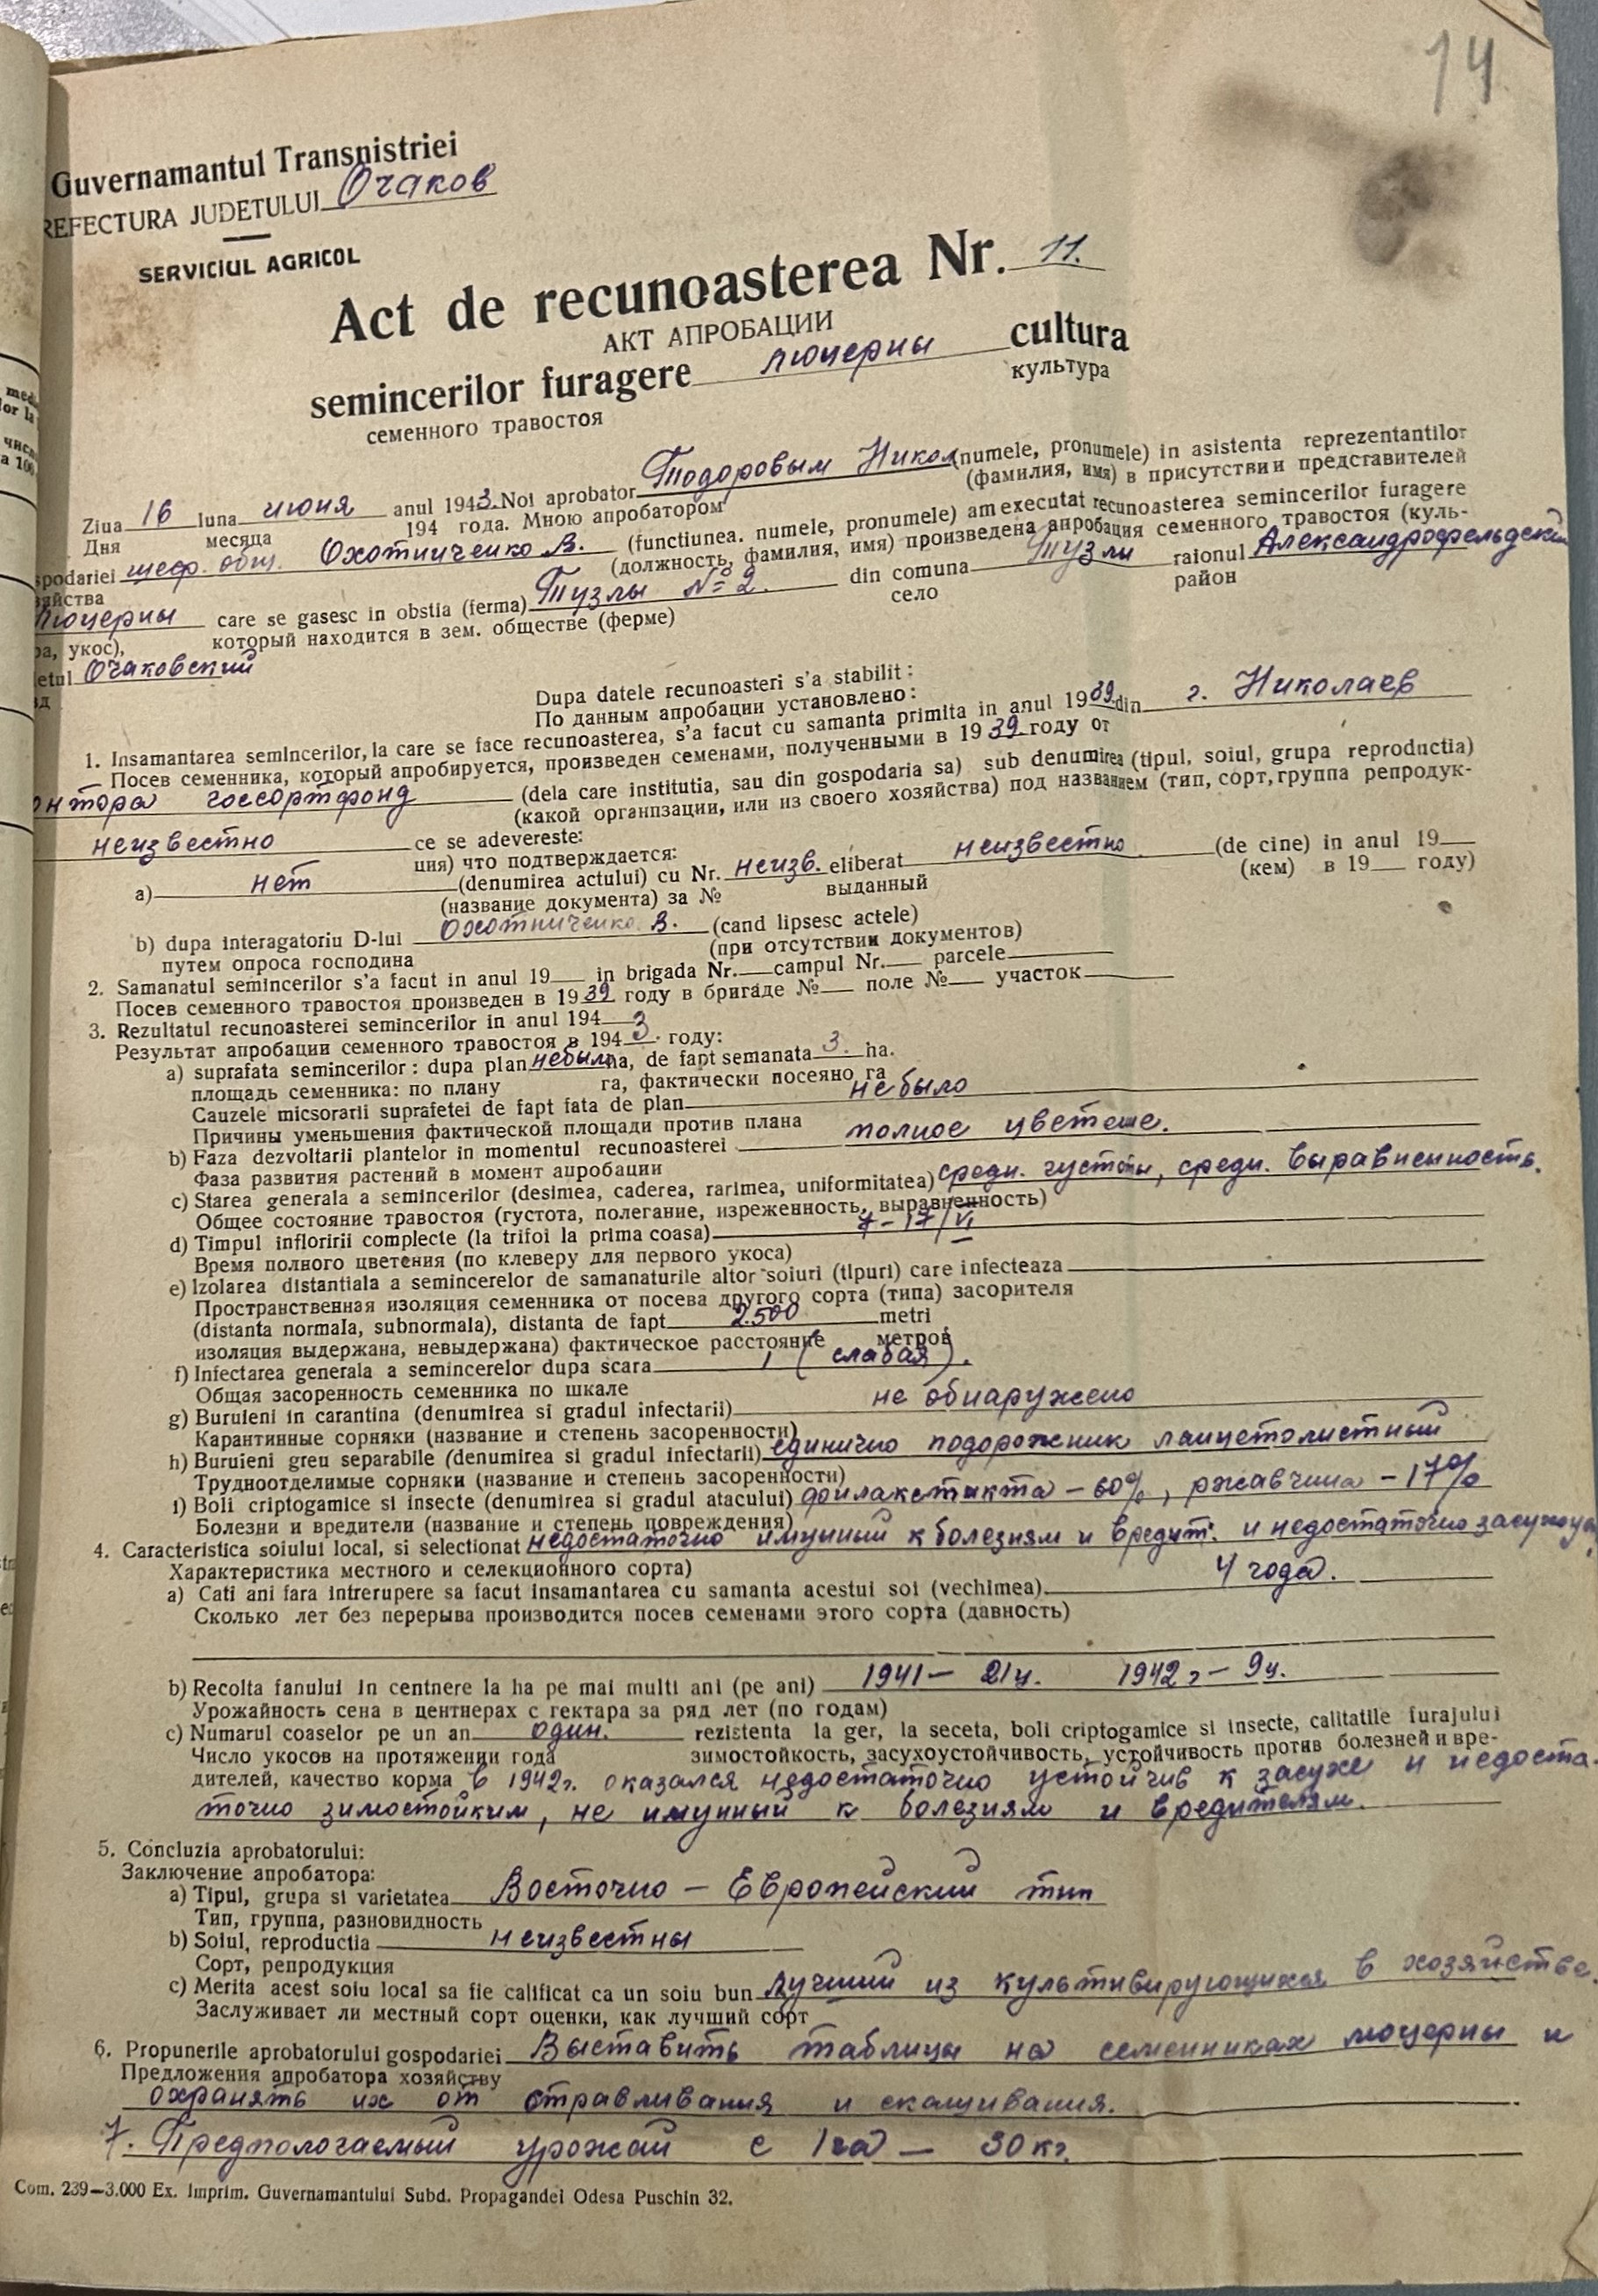 14
Guvernamantul Transnistriei
REFECTURA JUDETULUI Очаков
SERVICIUL AGRICOL
Act de recunoasterea Nr. 11.
АКТ АПРОБАЦИИ
semincerilor furagere люцерны cultura
семенного травостоя культура
Ziua 16 luna июня anul 1943. Noi aprobator Тодоровым Никол (numele, pronumele) in asistenta reprezentantilor
Дня месяца 194 года. Мною апробатором (фамилия, имя) в присутствии представителей
spodariei шеф. общ. Охотниченко В. (functiunea. numele, pronumele) am executat recunoasterea semincerilor furagere
зяйства (должность, фамилия, имя) произведена апробация семенного травостоя (куль-
люцерны care se gasesc in obstia (ferma) Тузлы № 2. din comuna Тузли raionul Александрофельдский
ра, укос), который находится в зем. обществе (ферме) село район
etul Очаковский
зд
Dupa datele recunoasteri s'a stabilit:
По данным апробации установлено:
1. Insamantarea semincerilor, la care se face recunoasterea, s'a facut cu samanta primita in anul 1939. din г. Николаев
Посев семенника, который апробируется, произведен семенами, полученными в 1939 году от
онтора госсортфонд (dela care institutia, sau din gospodaria sa) sub denumirea (tipul, soiul, grupa reproductia)
(какой организации, или из своего хозяйства) под названием (тип, сорт, группа репродук-
неизвестно ce se adevereste:
ция) что подтверждается:
a) нет (denumirea actului) cu Nr. неизв. eliberat неизвестно (de cine) in anul 19
(название документа) за № выданный (кем) в 19 году)
b) dupa interagatoriu D-lui Охотниченко В. (cand lipsesc actele)
путем опроса господина (при отсутствии документов)
2. Samanatul semincerilor s'a facut in anul 19 in brigada Nr. campul Nr. parcele
Посев семенного травостоя произведен в 1939 году в бригаде № поле № участок
3. Rezultatul recunoasterei semincerilor in anul 1943
Результат апробации семенного травостоя в 1943. году:
a) suprafata semincerilor: dupa plan небыло ha, de fapt semanata 3. ha.
площадь семенника: по плану га, фактически посеяно га
Cauzele micsorarii suprafetei de fapt fata de plan не было
Причины уменьшения фактической площади против плана
b) Faza dezvoltarii plantelor in momentul recunoasterei полное цветение.
Фаза развития растений в момент апробации
c) Starea generala a semincerilor (desimea, caderea, rarimea, uniformitatea) средн. густоты, средн. выравненность.
Общее состояние травостоя (густота, полегание, изреженность, выравненность)
d) Timpul infloririi complecte (la trifoi la prima coasa) 7-17/VI
Время полного цветения (по клеверу для первого укоса)
e) Izolarea distantiala a semincerelor de samanaturile altor soiuri (tipuri) care infecteaza
Пространственная изоляция семенника от посева другого сорта (типа) засорителя
(distanta normala, subnormala), distanta de fapt 2.500 metri
изоляция выдержана, невыдержана) фактическое расстояние метров
f) Infectarea generala a semincerelor dupa scara 1 (слабая).
Общая засоренность семенника по шкале
g) Buruieni in carantina (denumirea si gradul infectarii) не обнаружено
Карантинные сорняки (название и степень засоренности)
h) Buruieni greu separabile (denumirea si gradul infectarii) единично подорожник ланцетолистный
Трудноотделимые сорняки (название и степень засоренности)
i) Boli criptogamice si insecte (denumirea si gradul atacului) фойлакстикта – 60%, ржавчина – 17%
Болезни и вредители (название и степень повреждения)
4. Caracteristica soiului local, si selectionat недостаточно имунный к болезням и вредит. и недостаточно засухоу
Характеристика местного и селекционного сорта)
a) Cati ani fara intrerupere sa facut insamantarea cu samanta acestui soi (vechimea) 4 года.
Сколько лет без перерыва производится посев семенами этого сорта (давность)
b) Recolta fanului in centnere la ha pe mai multi ani (pe ani) 1941 – 21ц. 1942г – 9ц.
Урожайность сена в центнерах с гектара за ряд лет (по годам)
c) Numarul coaselor pe un an один. rezistenta la ger, la seceta, boli criptogamice si insecte, calitatile furajului
Число укосов на протяжении года зимостойкость, засухоустойчивость, устойчивость против болезней и вре-
дителей, качество корма в 1942г. оказался недостаточно устойчив к засухе и недоста-
точно зимостойким, не имунный к болезням и вредителям.
5. Concluzia aprobatorului:
Заключение апробатора:
a) Tipul, grupa si varietatea Восточно – Европейский тип
Тип, группа, разновидность
b) Soiul, reproductia неизвестны
Сорт, репродукция
c) Merita acest soiu local sa fie calificat ca un soiu bun лучший из культивирующихся в хозяйстве.
Заслуживает ли местный сорт оценки, как лучший сорт
6. Propunerile aprobatorului gospodariei Выставить таблицы на семенниках люцерны и
Предложения апробатора хозяйству
охранять их от стравливания и скашивания.
7. Предпологаемый урожай с 1га – 30кг.
Com. 239—3.000 Ex. Imprim. Guvernamantului Subd. Propagandei Odesa Puschin 32.